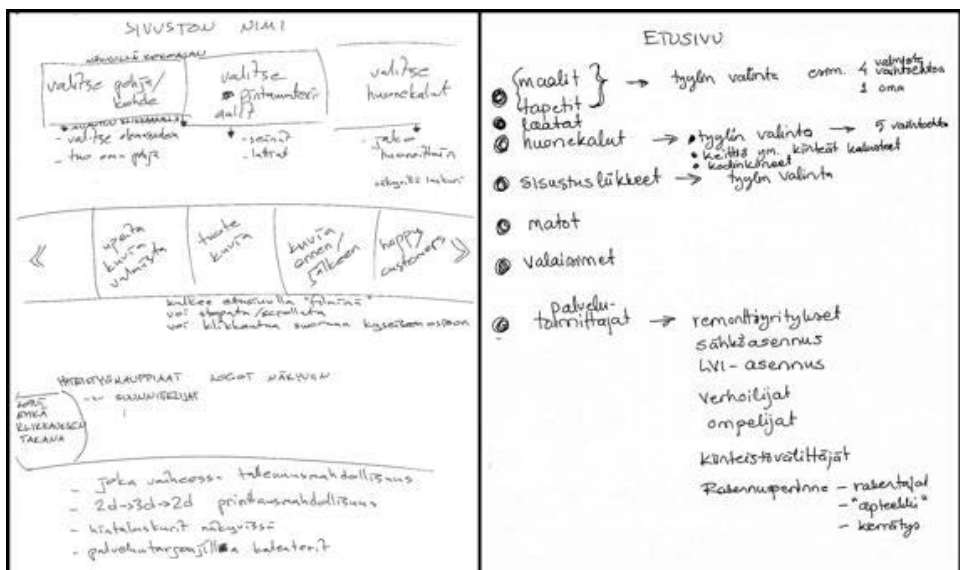 SIVUSTON NIMI
valitse pohja/
kohde
valitse
pintamateri-
aalit
valitse
huonekalut
- valitse
- tuo oma pohja
- seinät
- lattiat
- jako
huoneittain
upeita
kuvia
valmiista
tuote
kuvia
kuvia
ennen/
jälkeen
happy
customers
kulkee etusivulla "filminä"
voi stopata/scrollata
voi klikkautua suoraan kyseiseen osioon
YHTEISTYÖKAUPPIAAT LOGOT NÄKYVIIN
SUUNNITTELIJAT
EHKÄ
KLIKKAUKSEN
TAKANA
- joka vaiheessa tallennusmahdollisuus
- 2d->3d->2d printtausmahdollisuus
- hintalaskurit näkyvissä
- palveluntarjoajilla kalenterit
ETUSIVU
{maalit
tapetit} → tyylin valinta esim. 4 valmista
vaihtoehtoa
1 oma
laatat
huonekalut → • tyylin valinta → 5 vaihtoehtoa
• keittiö ym. kiinteät kalusteet
• kodinkoneet
sisustusliikkeet → tyylin valinta
matot
valaisimet
palvelu-
toimittajat → remonttiyritykset
sähköasennus
LVI-asennus
verhoilijat
ompelijat
kiinteistövälittäjät
Rakennusperinne - rakentajat
- "apteekki"
- kierrätys